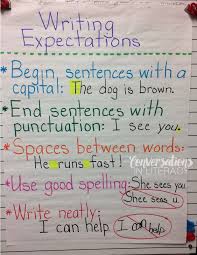 Writing
Expectations
* Begin sentences with a
capital: The dog is brown.
* End sentences with
punctuation: I see you.
* Spaces between words:
He runs fast!
Conversations
IN LITERACY
* Use good spelling: She sees you
She seas u.
* Write neatly:
I can help I can help